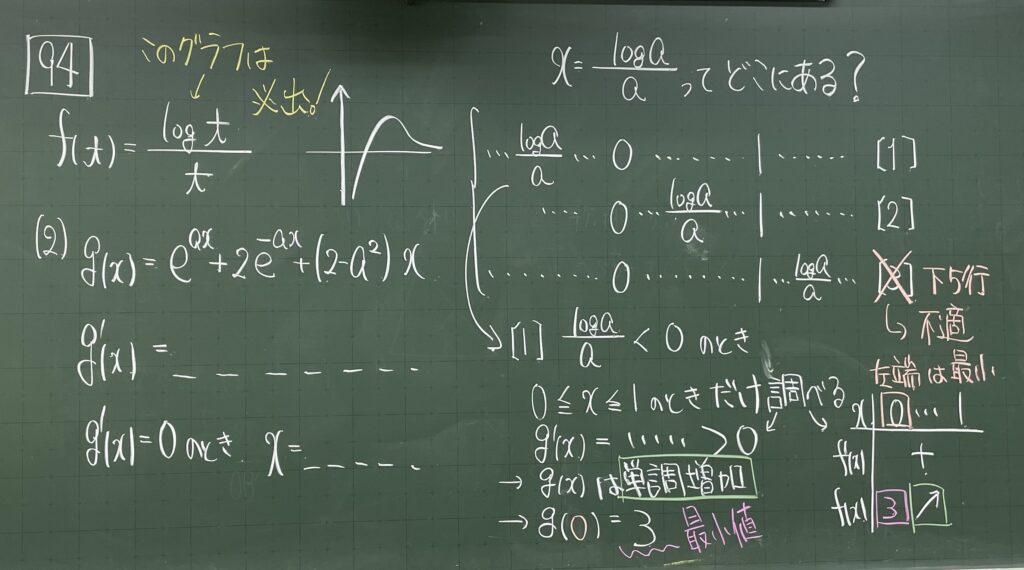 94
このグラフは
必出!
f(t) = log t / t
(2) g(x) = e^{ax} + 2e^{-ax} + (2-a^2)x
g'(x) = _ _ _ _ _ _ _
g'(x) = 0 のとき x = _ _ _ _ _
x = log a / a ってどこにある?
… log a / a … 0 …… 1 …… [1]
…… 0 … log a / a … 1 …… [2]
…… 0 …… 1 … log a / a … [3] 下5行
↳ 不適
[1] log a / a < 0 のとき
0 ≦ x ≦ 1 のときだけ調べる
g'(x) = …… > 0
→ g(x) は単調増加
→ g(0) = 3 最小値
左端は最小
x 0 … 1
f'(x) +
f(x) 3 ↗